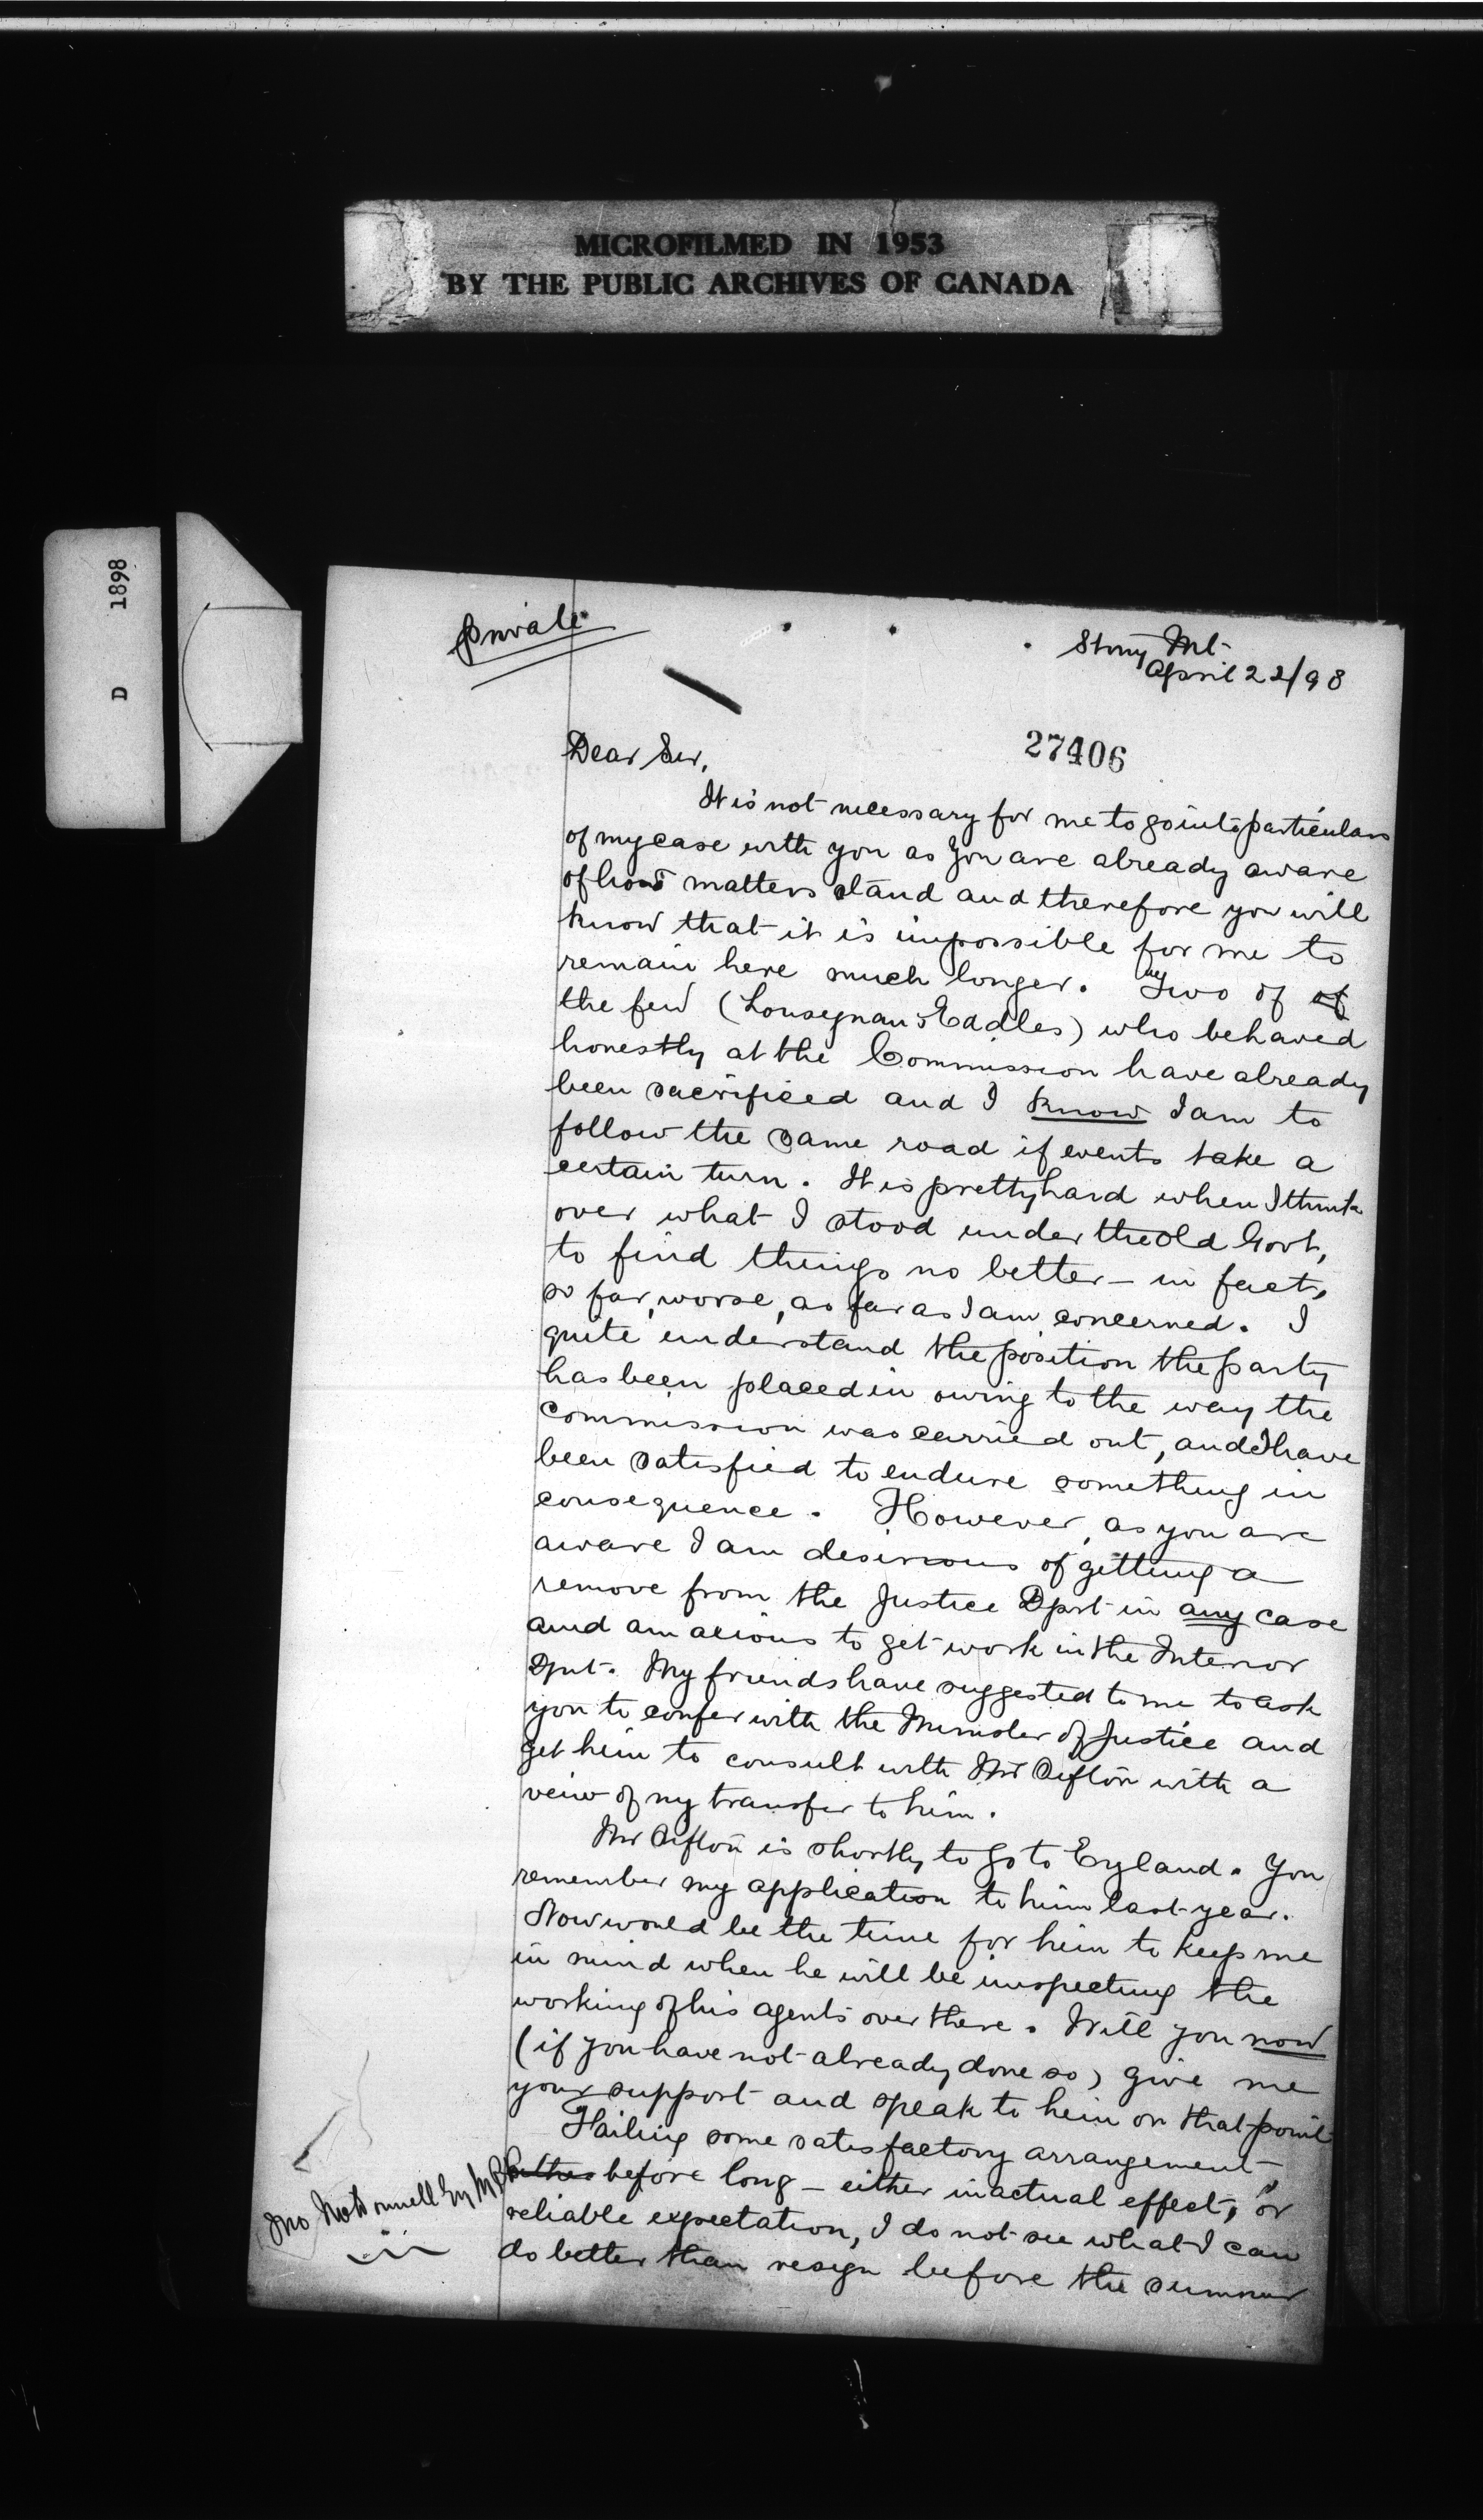 MICROFILMED IN 1953
BY THE PUBLIC ARCHIVES OF CANADA
D 1898
Private
Stony Mt
April 22/98
27406
Dear Sir,
It is not necessary for me to go into particulars
of my case with you as you are already aware
of how matters stand and therefore you will
know that it is impossible for me to
remain here much longer. Two of of
the few ( & Eddles) who behaved
honestly at the Commission have already
been sacrificed and I know I am to
follow the same road if events take a
certain turn. It is pretty hard when I think
over what I stood under the old Govt,
to find things no better – in fact,
so far, worse, as far as I am concerned. I
quite understand the position the party
has been placed in owing to the way the
commission was carried out, and I have
been satisfied to endure something in
consequence. However, as you are
aware I am desirious of getting a
remove from the Justice Dpst in any case
and am axious to get work in the Interior
Dpt. My friends have suggested to me to ask
you to confer with the Minister of Justice and
get him to consult with Mr Sifton with a
veiw of my transfer to him.
Mr Sifton is shortly to go to England. You
remember my application to him last year.
Now would be the time for him to keep me
in mind when he will be inspecting the
working of his agents over there. Will you now
(if you have not already done so) give me
your support and speak to him on that point
Failing some satisfactory arrangement
before long – either in actual effect, or
reliable expectation, I do not see what I can
do better than resign before the summer
Jno McDonnell Esq M.P.